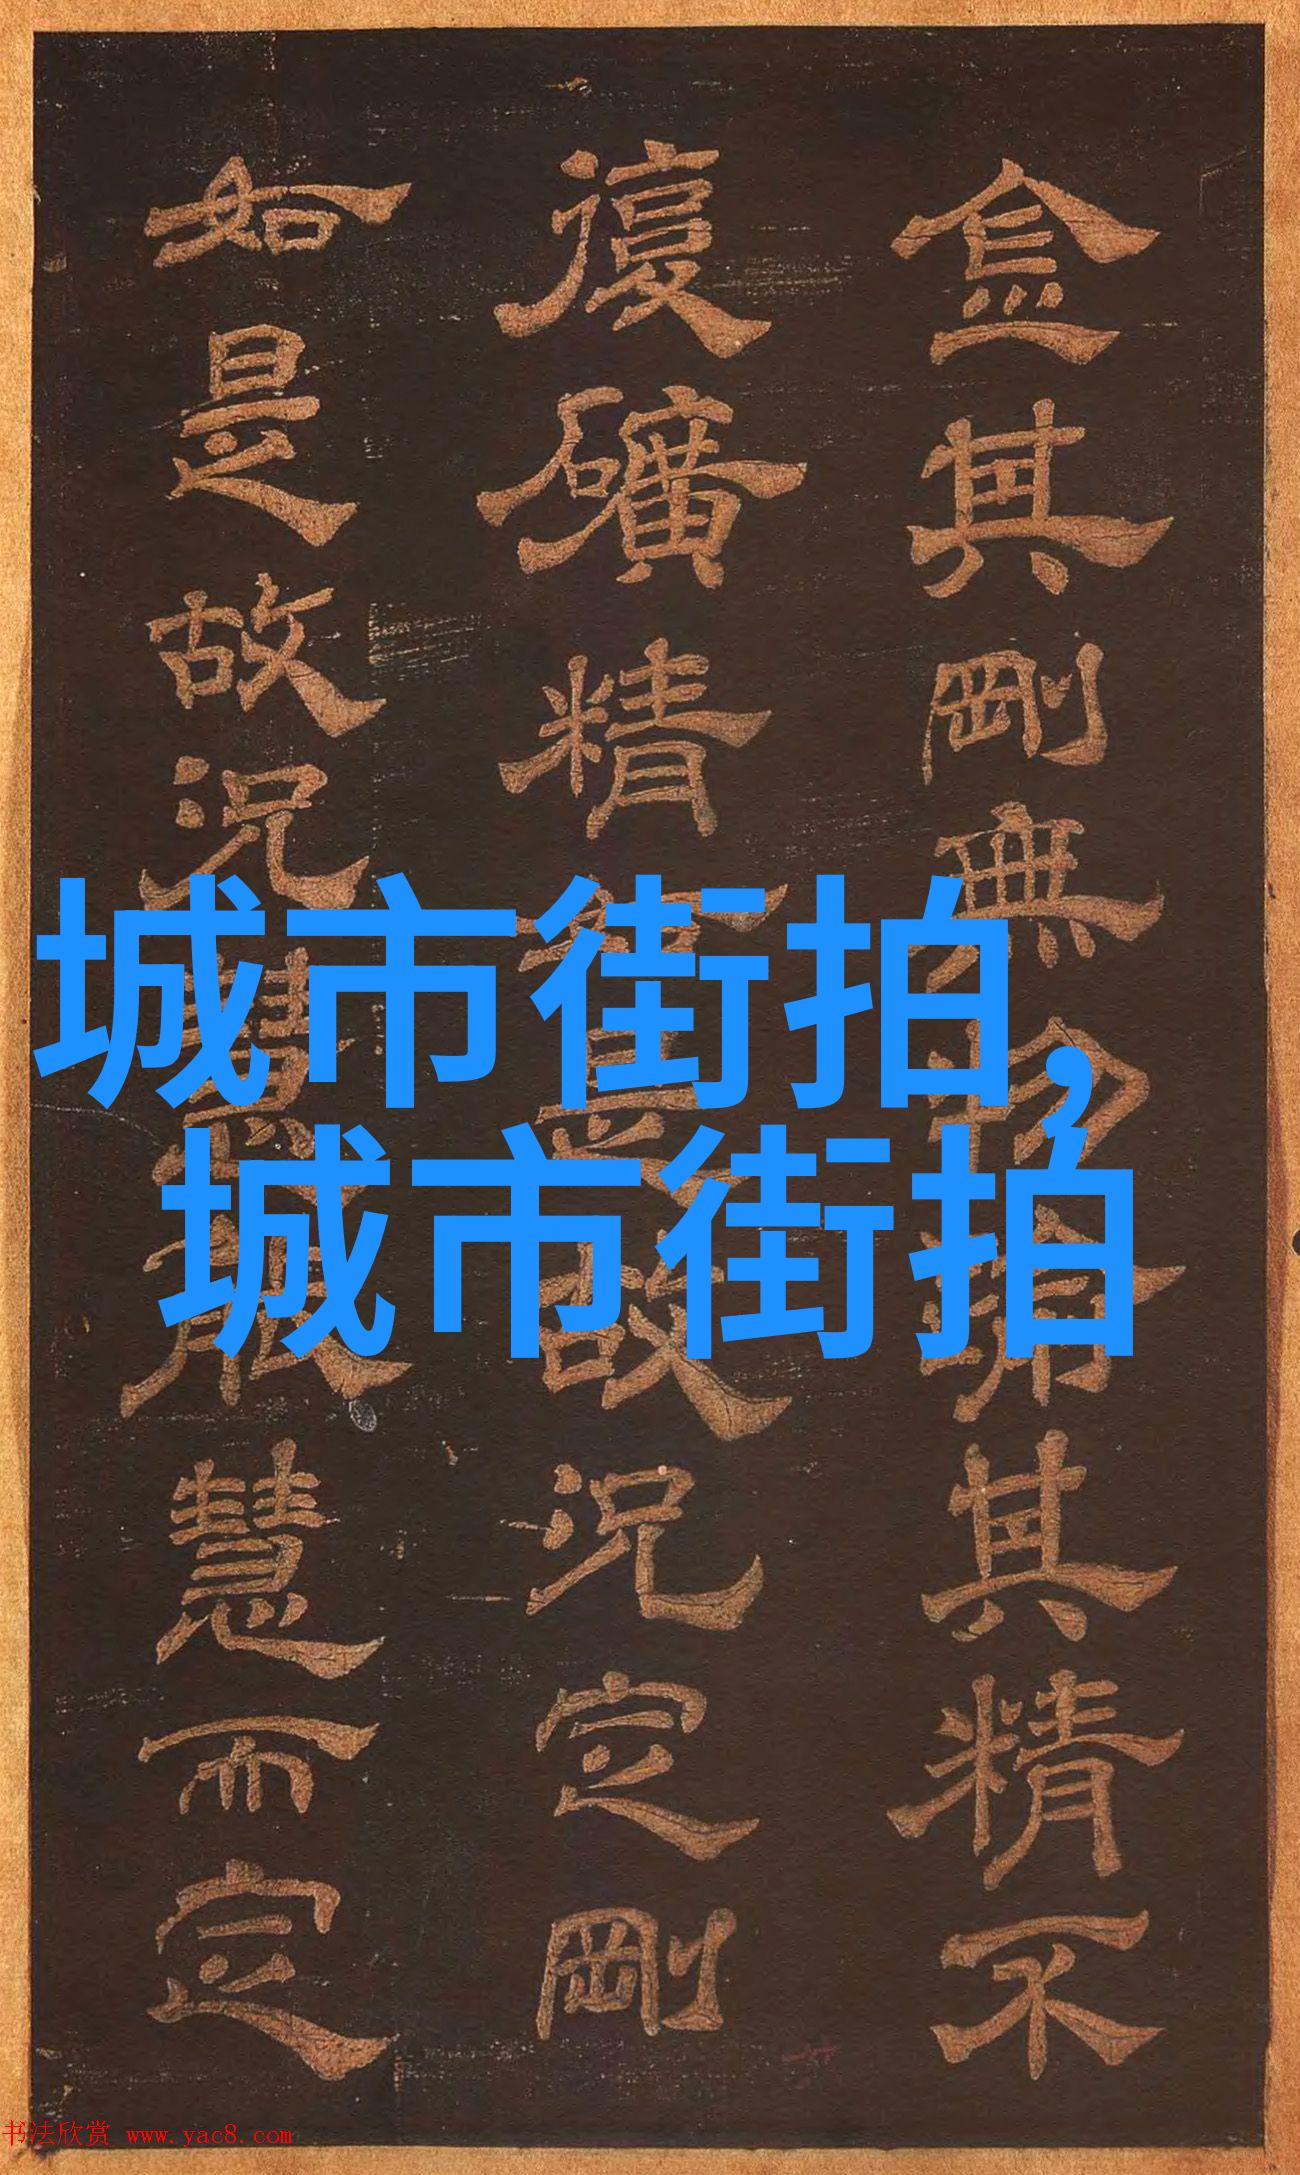 城市街拍，
城市街拍
金其剛無物其精不
復礦精故況定剛
如是故況慧慧而定
书法欣赏 www.yac8.com